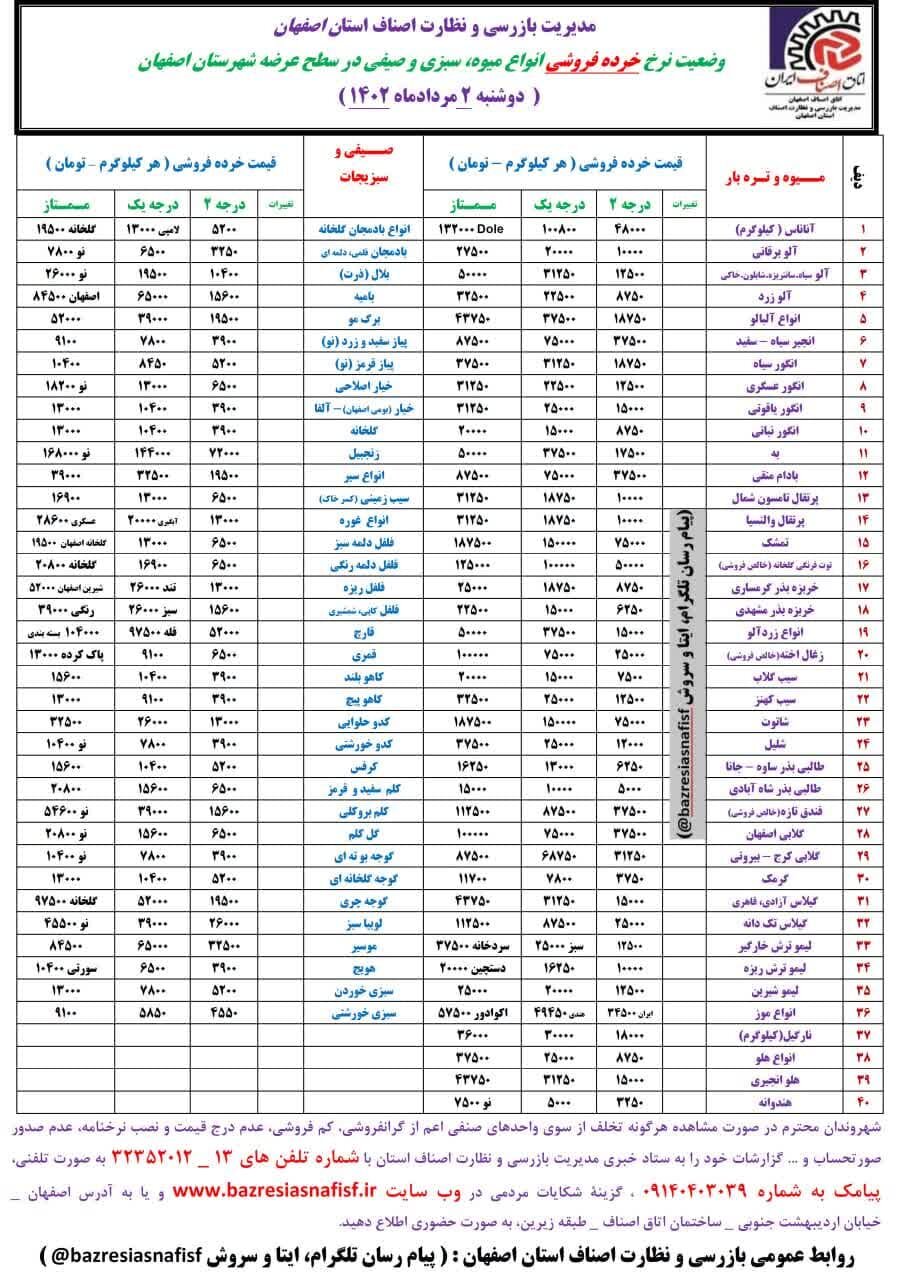 مدیریت بازرسی و نظارت اصناف استان اصفهان
وضعیت نرخ خرده فروشی انواع میوه، سبزی و صیفی در سطح عرضه شهرستان اصفهان
( دوشنبه ۲ مردادماه ۱۴۰۲ )
اتاق اصناف ایران
اتاق اصناف اصفهان
مدیریت بازرسی و نظارت اصناف
استان اصفهان
ردیف میوه و تره بار قیمت خرده فروشی ( هر کیلوگرم – تومان ) صیفی و سبزیجات قیمت خرده فروشی ( هر کیلوگرم – تومان )
تغییرات درجه ۲ درجه یک ممتاز تغییرات درجه ۲ درجه یک ممتاز
۱ آناناس ( کیلوگرم) ۴۸۰۰۰ ۱۰۰۸۰۰ Dole ۱۳۲۰۰۰ انواع بادمجان گلخانه ۵۲۰۰ لامپی ۱۳۰۰۰ گلخانه ۱۹۵۰۰
۲ آلو برقانی ۱۰۰۰۰ ۲۰۰۰۰ ۲۷۵۰۰ بادمجان قلمی، دلمه ای ۳۲۵۰ ۶۵۰۰ نو ۷۸۰۰
۳ آلو سیاه،سانتریزه،شابلون،خاکی ۱۲۵۰۰ ۳۱۲۵۰ ۵۰۰۰۰ بلال (ذرت) ۱۰۴۰۰ ۱۹۵۰۰ نو ۲۶۰۰۰
۴ آلو زرد ۸۷۵۰ ۲۲۵۰۰ ۳۲۵۰۰ بامیه ۱۵۶۰۰ ۶۵۰۰۰ اصفهان ۸۴۵۰۰
۵ انواع آلبالو ۱۸۷۵۰ ۳۷۵۰۰ ۴۳۷۵۰ برگ مو ۱۹۵۰۰ ۳۹۰۰۰ ۵۲۰۰۰
۶ انجیر سیاه – سفید ۳۷۵۰۰ ۷۵۰۰۰ ۸۷۵۰۰ پیاز سفید و زرد (نو) ۳۹۰۰ ۷۸۰۰ ۹۱۰۰
۷ انگور سیاه ۱۸۷۵۰ ۳۱۲۵۰ ۳۷۵۰۰ پیاز قرمز (نو) ۵۲۰۰ ۸۴۵۰ ۱۰۴۰۰
۸ انگور عسگری ۱۲۵۰۰ ۲۲۵۰۰ ۳۱۲۵۰ خیار اصلاحی ۶۵۰۰ ۱۳۰۰۰ نو ۱۸۲۰۰
۹ انگور یاقوتی ۱۵۰۰۰ ۲۵۰۰۰ ۳۱۲۵۰ خیار (بومی اصفهان) – آلفا ۳۹۰۰ ۱۰۴۰۰ ۱۳۰۰۰
۱۰ انگور نباتی ۸۷۵۰ ۱۵۰۰۰ ۲۰۰۰۰ گلخانه ۳۹۰۰ ۱۰۴۰۰ ۱۳۰۰۰
۱۱ به ۱۷۵۰۰ ۳۷۵۰۰ ۵۰۰۰۰ زنجبیل ۷۲۰۰۰ ۱۴۴۰۰۰ نو ۱۶۸۰۰۰
۱۲ بادام منقی ۳۷۵۰۰ ۷۵۰۰۰ ۸۷۵۰۰ انواع سیر ۱۹۵۰۰ ۳۲۵۰۰ ۳۹۰۰۰
۱۳ پرتقال تامسون شمال ۱۰۰۰۰ ۱۸۷۵۰ ۳۱۲۵۰ سیب زمینی (کسر خاک) ۶۵۰۰ ۱۳۰۰۰ ۱۶۹۰۰
۱۴ پرتقال والنسیا ۱۰۰۰۰ ۱۸۷۵۰ ۳۱۲۵۰ انواع غوره ۱۳۰۰۰ آبگیری ۲۰۰۰۰ عسگری ۲۸۶۰۰
۱۵ تمشک ۷۵۰۰۰ ۱۵۰۰۰۰ ۱۸۷۵۰۰ فلفل دلمه سبز ۶۵۰۰ ۱۳۰۰۰ گلخانه اصفهان ۱۹۵۰۰
۱۶ توت فرنگی گلخانه (خالص فروشی) ۵۰۰۰۰ ۱۰۰۰۰۰ ۱۲۵۰۰۰ فلفل دلمه رنگی ۶۵۰۰ ۱۶۹۰۰ گلخانه ۲۰۸۰۰
۱۷ خربزه بذر گرمساری ۸۷۵۰ ۱۸۷۵۰ ۲۵۰۰۰ فلفل ریزه ۱۳۰۰۰ تند ۲۶۰۰۰ شیرین اصفهان ۵۲۰۰۰
۱۸ خربزه بذر مشهدی ۶۲۵۰ ۱۵۰۰۰ ۲۲۵۰۰ فلفل کاپی، شمشیری ۱۵۶۰۰ سبز ۲۶۰۰۰ رنگی ۳۹۰۰۰
۱۹ انواع زردآلو ۱۵۰۰۰ ۳۷۵۰۰ ۵۰۰۰۰ قارچ ۵۲۰۰۰ فله ۹۷۵۰۰ ۱۰۴۰۰۰ بسته بندی
۲۰ زغال اخته(خالص فروشی) ۲۵۰۰۰ ۷۵۰۰۰ ۱۰۰۰۰۰ قمری ۶۵۰۰ ۹۱۰۰ پاک کرده ۱۳۰۰۰
۲۱ سیب گلاب ۷۵۰۰ ۱۵۰۰۰ ۲۰۰۰۰ کاهو بلند ۳۹۰۰ ۱۰۴۰۰ ۱۵۶۰۰
۲۲ سیب کهنز ۱۲۵۰۰ ۲۵۰۰۰ ۳۲۵۰۰ کاهو پیچ ۳۹۰۰ ۹۱۰۰ ۱۳۰۰۰
۲۳ شاتوت ۷۵۰۰۰ ۱۵۰۰۰۰ ۱۸۷۵۰۰ کدو حلوایی ۱۳۰۰۰ ۲۶۰۰۰ ۳۲۵۰۰
۲۴ شلیل ۱۲۰۰۰ ۲۵۰۰۰ ۳۷۵۰۰ کدو خورشتی ۳۹۰۰ ۷۸۰۰ نو ۱۰۴۰۰
۲۵ طالبی بذر ساوه – جانا ۶۲۵۰ ۱۳۰۰۰ ۱۶۲۵۰ کرفس ۵۲۰۰ ۱۰۴۰۰ ۱۵۶۰۰
۲۶ طالبی بذر شاه آبادی ۵۰۰۰ ۱۰۰۰۰ ۱۵۰۰۰ کلم سفید و قرمز ۶۵۰۰ ۱۵۶۰۰ ۲۰۸۰۰
۲۷ فندق تازه(خالص فروشی) ۳۷۵۰۰ ۸۷۵۰۰ ۱۱۲۵۰۰ کلم بروکلی ۱۵۶۰۰ ۳۹۰۰۰ نو ۵۴۶۰۰
۲۸ گلابی اصفهان ۳۷۵۰۰ ۷۵۰۰۰ ۱۰۰۰۰۰ گل کلم ۶۵۰۰ ۱۵۶۰۰ نو ۲۰۸۰۰
۲۹ گلابی کرج – بیروتی ۳۱۲۵۰ ۶۸۷۵۰ ۸۷۵۰۰ گوجه بوته ای ۳۹۰۰ ۷۸۰۰ نو ۱۰۴۰۰
۳۰ گرمک ۳۷۵۰ ۷۸۰۰ ۱۱۷۰۰ گوجه گلخانه ای ۵۲۰۰ ۱۰۴۰۰ ۱۳۰۰۰
۳۱ گیلاس آزادی، قاهری ۱۵۰۰۰ ۳۱۲۵۰ ۴۳۷۵۰ گوجه چری ۱۹۵۰۰ ۵۲۰۰۰ گلخانه ۹۷۵۰۰
۳۲ گیلاس تک دانه ۲۵۰۰۰ ۸۷۵۰۰ ۱۱۲۵۰۰ لوبیا سبز ۲۶۰۰۰ ۳۹۰۰۰ نو ۴۵۵۰۰
۳۳ لیمو ترش خارگیر ۱۲۵۰۰ سبز ۲۵۰۰۰ سردخانه ۳۷۵۰۰ موسیر ۳۲۵۰۰ ۶۵۰۰۰ ۸۴۵۰۰
۳۴ لیمو ترش ریزه ۱۰۰۰۰ ۱۶۲۵۰ دستچین ۲۰۰۰۰ هویج ۳۹۰۰ ۶۵۰۰ سورتی ۱۰۴۰۰
۳۵ لیمو شیرین ۱۲۵۰۰ ۲۰۰۰۰ ۲۵۰۰۰ سبزی خوردن ۵۲۰۰ ۷۸۰۰ ۱۳۰۰۰
۳۶ انواع موز ایران ۳۴۵۰۰ هندی ۴۹۴۵۰ اکوادور ۵۷۵۰۰ سبزی خورشتی ۴۵۵۰ ۵۸۵۰ ۹۱۰۰
۳۷ نارگیل(کیلوگرم) ۱۸۰۰۰ ۳۰۰۰۰ ۳۶۰۰۰
۳۸ انواع هلو ۸۷۵۰ ۲۵۰۰۰ ۳۷۵۰۰
۳۹ هلو انجیری ۱۵۰۰۰ ۳۱۲۵۰ ۴۳۷۵۰
۴۰ هندوانه ۳۲۵۰ ۵۰۰۰ نو ۷۵۰۰
(پیام رسان تلگرام، ایتا و سروش bazresiasnafisf@)
شهروندان محترم در صورت مشاهده هرگونه تخلف از سوی واحدهای صنفی اعم از گرانفروشی، کم فروشی، عدم درج قیمت و نصب نرخنامه، عدم صدور
صورتحساب و ... گزارشات خود را به ستاد خبری مدیریت بازرسی و نظارت اصناف استان با شماره تلفن های ۱۳ _ ۳۲۳۵۲۰۱۲ به صورت تلفنی،
پیامک به شماره ۰۹۱۴۰۴۰۳۰۳۹ ، گزینهٔ شکایات مردمی در وب سایت www.bazresiasnafisf.ir و یا به آدرس اصفهان _
خیابان اردیبهشت جنوبی _ ساختمان اتاق اصناف _ طبقه زیرین، به صورت حضوری اطلاع دهید.
روابط عمومی بازرسی و نظارت اصناف استان اصفهان : ( پیام رسان تلگرام، ایتا و سروش bazresiasnafisf@ )